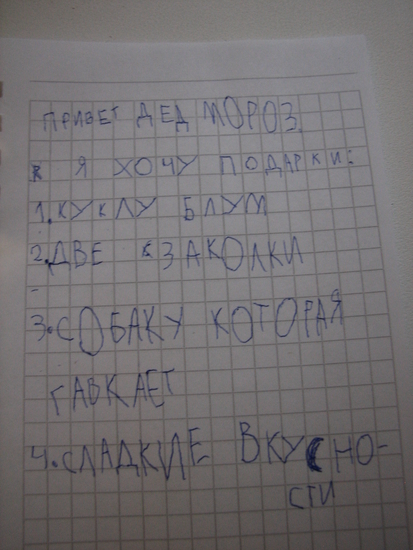 ПРИВЕТ ДЕД МОРОЗ.
Я ХОЧУ ПОДАРКИ:
1. КУКЛУ БЛУМ
2. ДВЕ ЗАКОЛКИ
3. СОБАКУ КОТОРАЯ
ГАВКАЕТ
4. СЛАДКИЕ ВКУСНО-
СТИ